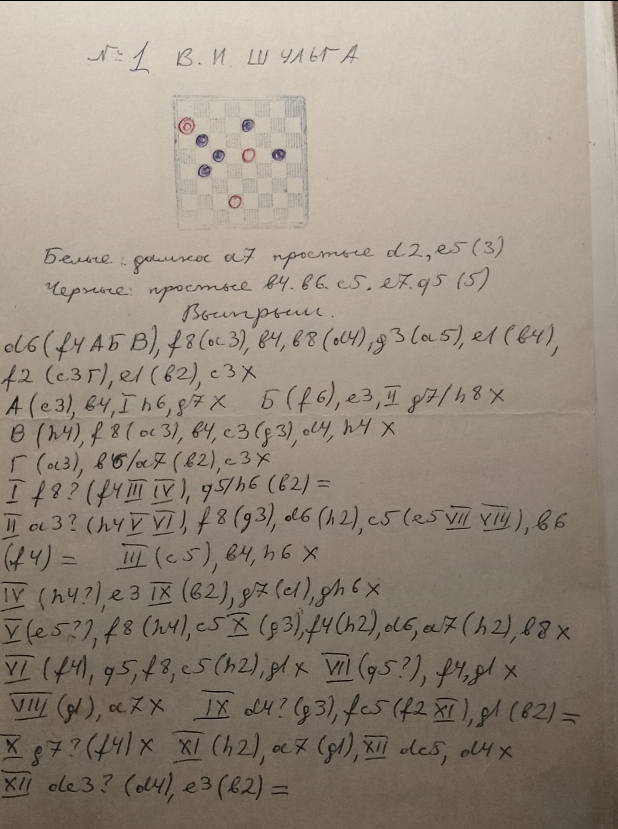 № 1 В. И. ШУЛЬГА
Белые: дамка a7 простые d2, e5 (3)
Черные: простые b4. b6. c5. e7. g5 (5)
Выигрыш.
d6 (f4 А Б В), f8 (a3), b4, b8 (d4), g3 (a5), e1 (b4),
f2 (c3 Г), e1 (b2), c3 X
А (c3), b4, I h6, g7 X Б (f6), e3, II g7/h8 X
В (h4), f8 (a3), b4, c3 (g3), d4, h4 X
Г (a3), b6/a7 (b2), c3 X
I f8? (f4 III IV), g5/h6 (b2) =
II a3? (h4 V VI), f8 (g3), d6 (h2), c5 (e5 VII VIII), b6
(f4) = III (c5), b4, h6 X
IV (h4?), e3 IX (b2), g7 (c1), gh6 X
V (e5?), f8 (h4), c5 X (g3), f4 (h2), d6, a7 (h2), b8 X
VI (f4), g5, f8, c5 (h2), g1 X VII (g5?), f4, g1 X
VIII (g1), a7 X IX d4? (g3), fc5 (f2 XI), g1 (b2) =
X g7? (f4) X XI (h2), a7 (g1), XII dc5, d4 X
XII de3? (d4), e3 (b2) =